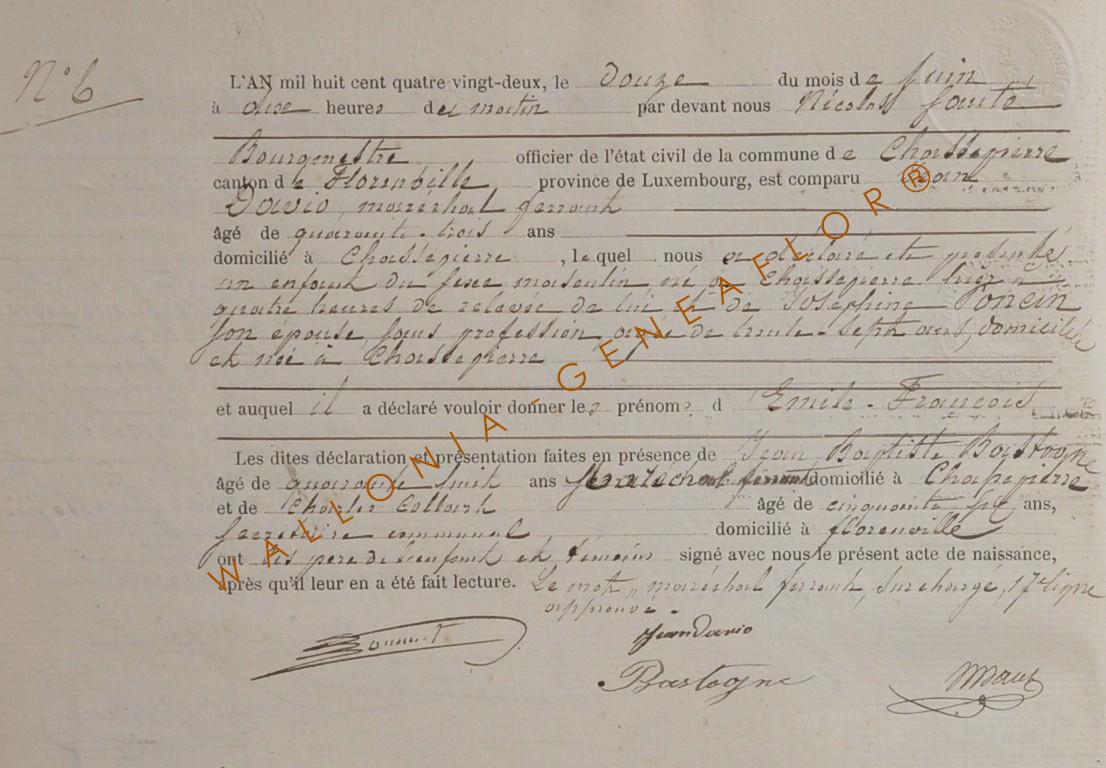 N° 6
L'AN mil huit cent quatre vingt-deux, le Douze du mois de Juin
à onze heures du matin par devant nous Nicolas
Bourgmestre officier de l'état civil de la commune de Chassepierre
canton de Florenville province de Luxembourg, est comparu Jean
Davio, maréchal ferrant
âgé de quarante-trois ans
domicilié à Chassepierre, lequel nous a déclaré et présenté
un enfant du sexe masculin, né à Chassepierre hier à
quatre heures de relevée de lui et de Joséphine Poncin
son épouse, sans profession, âgée de trente-sept ans, domiciliée
et née à Chassepierre
et auquel il a déclaré vouloir donner les prénoms d Emile-François
Les dites déclaration et présentation faites en présence de Jean Baptiste Bastogne
âgé de quarante huit ans maréchal ferrant domicilié à Chassepierre
et de Charles Collard âgé de cinquante six ans,
secrétaire communal domicilié à florenville
ont les père de l'enfant et témoins signé avec nous le présent acte de naissance,
après qu'il leur en a été fait lecture. Le mot " maréchal ferrant, surchargé, 17e ligne
approuvé.
Jean Davio
Bastogne
WALLONIA - GENEAFLOR®